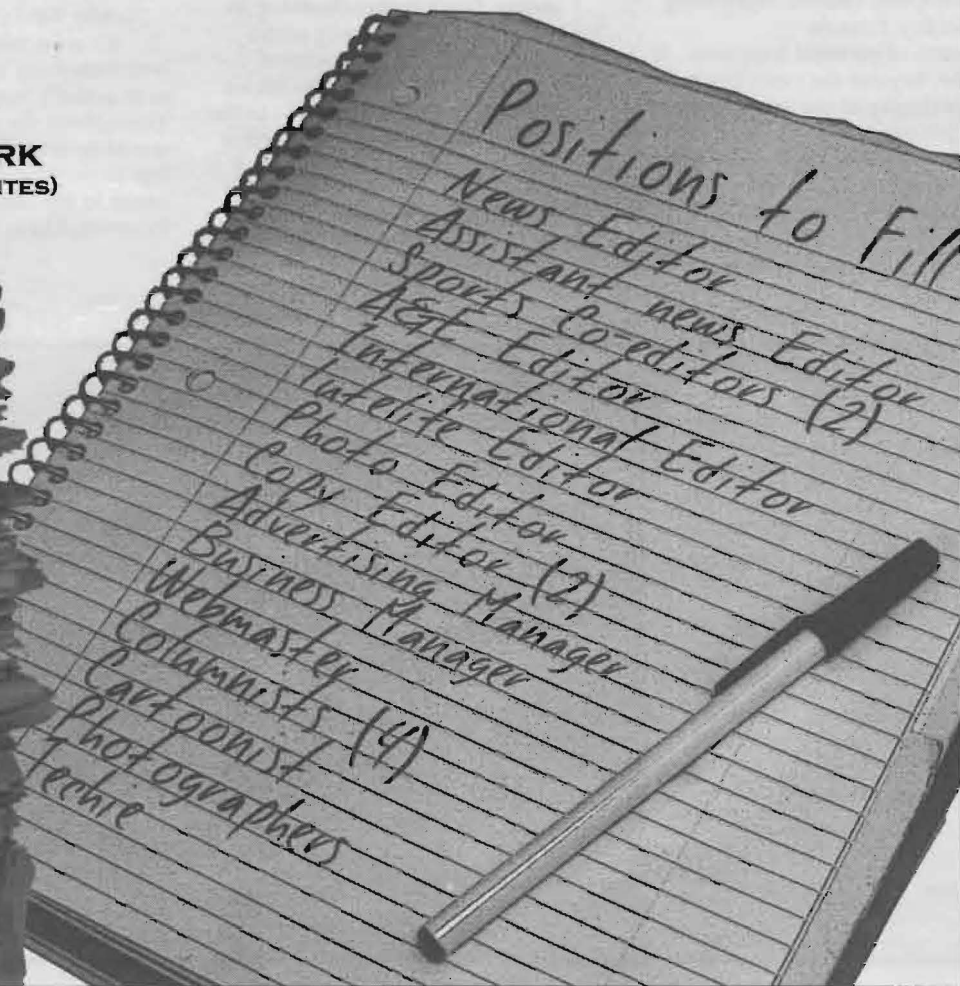 RK
ITES)
Positions to Fill
News Editor
Assistant news Editor
Sports Co-editors (2)
A&E Editor
International Editor
Intelite Editor
Photo Editor
Copy Editor (2)
Advertising Manager
Business Manager
Webmaster
Columnists (4)
Cartoonist
Photographers
Techie